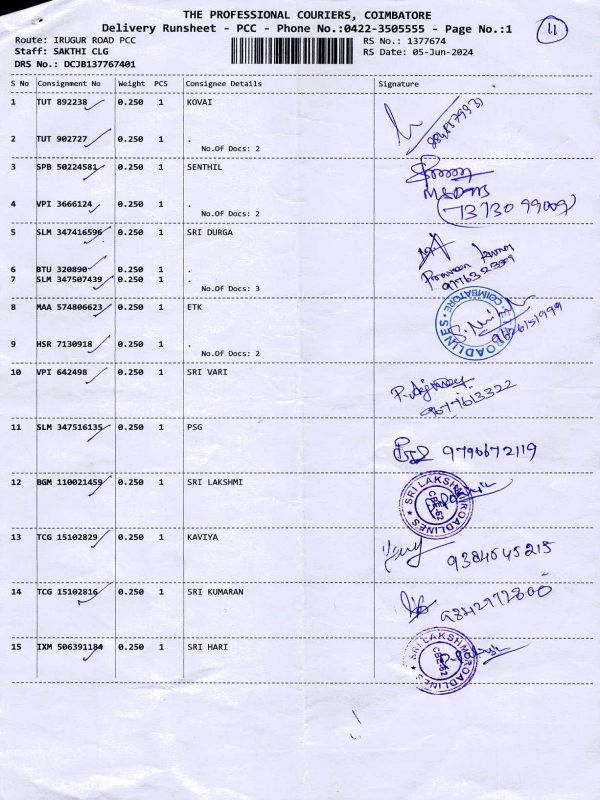 THE PROFESSIONAL COURIERS, COIMBATORE
11
Delivery Runsheet - PCC - Phone No.:0422-3505555 - Page No.:1
Route: IRUGUR ROAD PCC
RS No.: 1377674
Staff: SAKTHI CLG
RS Date: 05-Jun-2024
DRS No.: DCJB137767401
S No Consignment No Weight PCS Consignee Details Signature
1 TUT 892238 0.250 1 KOVAI
2 TUT 902727 0.250 1 .
No.Of Docs: 2
3 SPB 50224581 0.250 1 SENTHIL
4 VPI 3666124 0.250 1 .
73730 99009
No.Of Docs: 2
5 SLM 347416596 0.250 1 SRI DURGA
6 BTU 320890 0.250 1 .
7 SLM 347507439 0.250 1 .
No.Of Docs: 3
8 MAA 574806623 0.250 1 ETK
COIMBATORE
ROADLINES
9 HSR 7130918 0.250 1 .
No.Of Docs: 2
10 VPI 642498 0.250 1 SRI VARI
9677613322
11 SLM 347516135 0.250 1 PSG
9790672119
12 BGM 110021459 0.250 1 SRI LAKSHMI
SRI LAKSHMI ROADLINES
13 TCG 15102829 0.250 1 KAVIYA
9384645215
14 TCG 15102816 0.250 1 SRI KUMARAN
9842972800
15 IXM 506391184 0.250 1 SRI HARI
SRI LAKSHMI ROADLINES
CBE-62